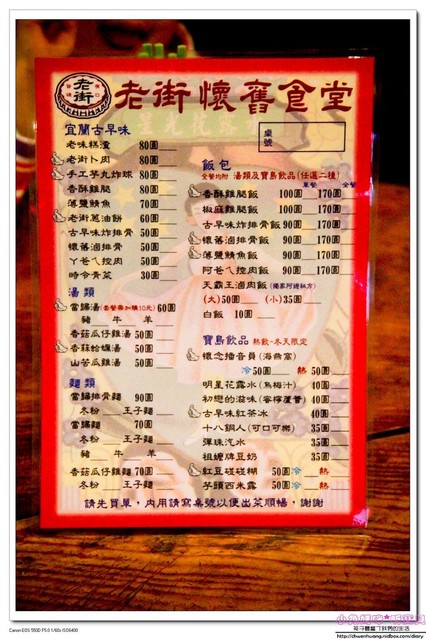 老街
老街懷舊食堂
桌號
宜蘭古早味
老味糕渣 80圓
老街卜肉 80圓
手工芋丸炸球 80圓
香酥雞腿 80圓
薄鹽鯖魚 70圓
老街蔥油餅 60圓
古早味炸排骨 50圓
懷舊滷排骨 50圓
丫爸ㄟ控肉 50圓
時令青菜 30圓
湯類
當歸湯(套餐需加購10元) 60圓
豬 牛 羊
香菇瓜仔雞湯 50圓
香菇蛤蠣湯 50圓
山苦瓜雞湯 50圓
麵類
當歸排骨麵 90圓
冬粉 王子麵
當歸麵 70圓
冬粉 王子麵
豬 牛 羊
香菇瓜仔雞麵 70圓
冬粉 王子麵
飯包
全餐均附 湯類及寶島飲品(任選二種)
單餐 全餐
香酥雞腿飯 100圓 170圓
椒麻雞腿飯 100圓 170圓
古早味炸排骨飯 90圓 170圓
懷舊滷排骨飯 90圓 170圓
薄鹽鯖魚飯 90圓 170圓
阿爸ㄟ控肉飯 90圓 170圓
天霸王滷肉飯(獨家阿嬤秘方)
(大)50圓 (小)35圓
白飯 10圓
寶島飲品 熱飲·冬天限定
懷念播音員(海燕窩)
冷50圓 熱50圓
明星花露水(烏梅汁) 40圓
初戀的滋味(蜜檸蘆薈) 40圓
古早味紅茶冰 40圓
十八銅人(可口可樂) 35圓
彈珠汽水 35圓
祖嬤牌豆奶 35圓
紅豆碰碰糊 50圓 冷 熱
芋頭西米露 50圓 冷 熱
請先買單,內用請寫桌號以便出菜順暢,謝謝
Canon EOS 550D F5.0 1/60s ISO6400
http://chwenhuang.nidbox.com/diary